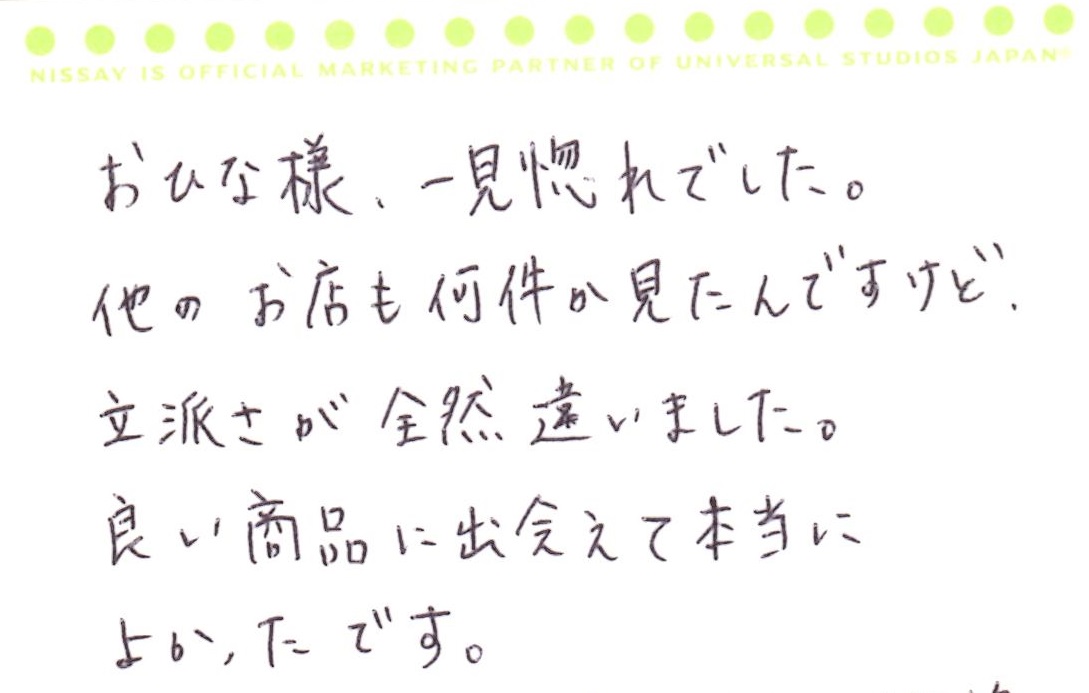 NISSAY IS OFFICIAL MARKETING PARTNER OF UNIVERSAL STUDIOS JAPAN®
おひな様、一見惚れでした。
他のお店も何件か見たんですけど、
立派さが全然違いました。
良い商品に出会えて本当に
よかったです。